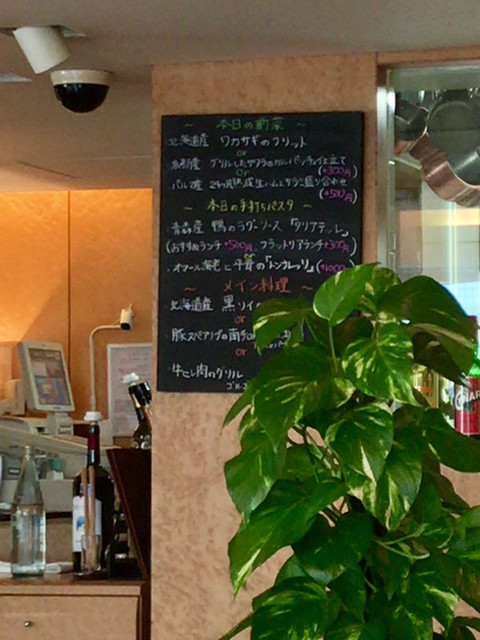 ～ 本日の前菜 ～
北海道産 ワカサギのフリット
or
(+300円)
パルマ産 24ヶ月熟成生ハムとサラミ盛り合わせ
(+500円)
～ 本日の手打ちパスタ ～
青森産 鴨のラグーソース「タリアテッレ」
(おすすめランチ+500円、フラットリアランチ+300円)
or
オマール海老と 「トンナレッリ」(+1000円
～ メイン料理 ～
北海道産 黒ソイの
or
豚スペアリブの南
or
牛こし肉のグリル